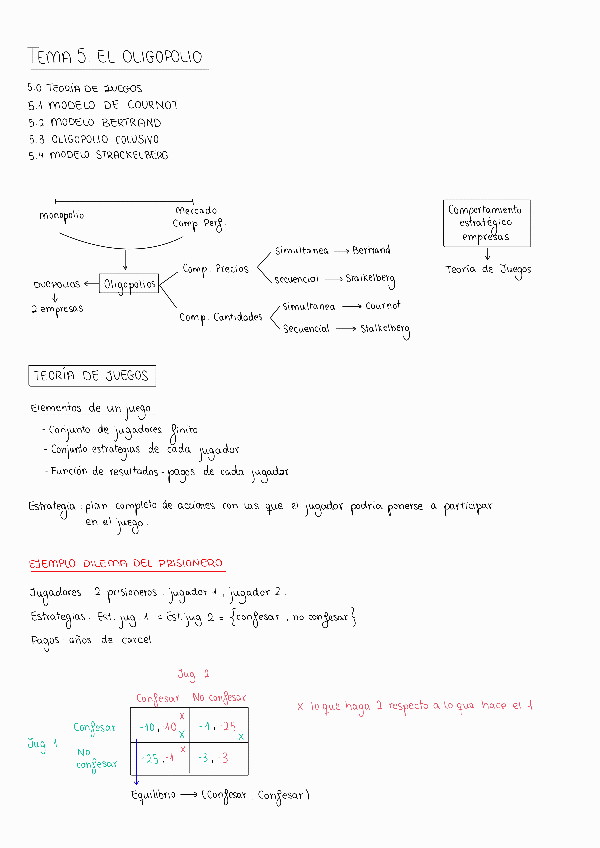 TEMA 5 EL OLIGOPOLIO
5.0 TEORÍA DE JUEGOS
5.1 MODELO DE COURNOT
5.2 MODELO BERTRAND
5.3 OLIGOPOLIO COLUSIVO
5.4 MODELO STRACKELBERG
Monopolio
Mercado
Comp. Perf.
Comportamiento
estratégico
empresas
Teoría de Juegos
DUOPOLIOS ← Oligopolios
2 empresas
Comp. Precios
Simultanea → Bertrand
secuencial → Stalkelberg
Comp. Cantidades
Simultanea → Cournot
Secuencial → Stalkelberg
TEORÍA DE JUEGOS
Elementos de un juego
- Conjunto de jugadores finito
- Conjunto estrategias de cada jugador
- Función de resultados - pagos de cada jugador
Estrategia: plan completo de acciones con las que el jugador podría ponerse a participar
en el juego.
EJEMPLO DILEMA DEL PRISIONERO
Jugadores 2 prisioneros. jugador 1, jugador 2.
Estrategias. Est. jug 1 = Est. jug 2 = {confesar, no confesar}
Pagos años de carcel
Jug 2
Confesar No confesar
x lo que haga 2 respecto a lo que hace el 1
Jug 1
Confesar -10, -10 x x -1, -25 x
No
confesar -25, -1 x -3, -3
Equilibrio → (Confesar Confesar)